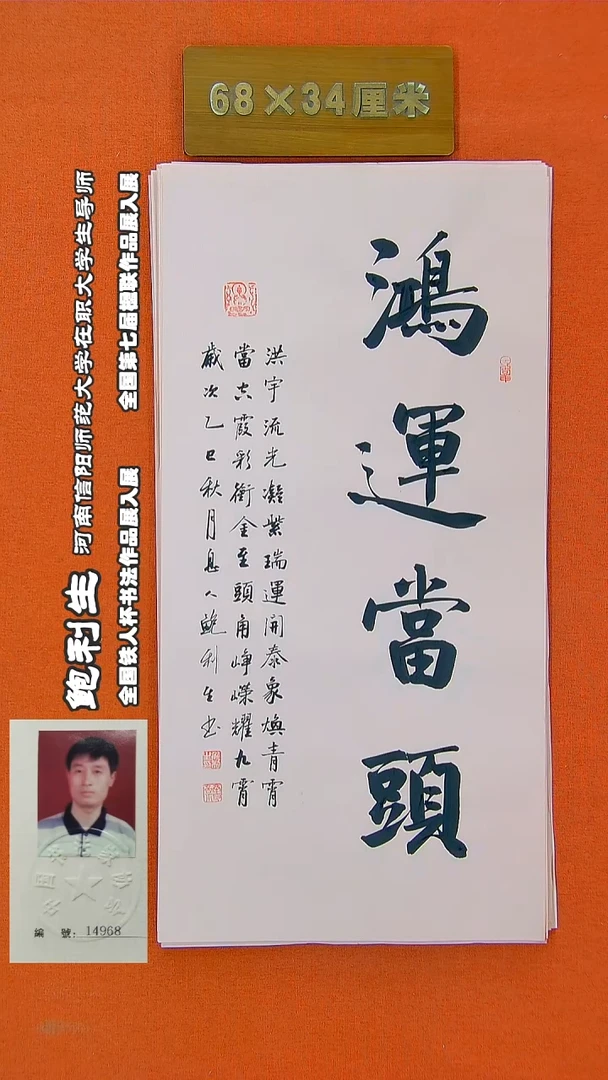 68×34厘米
鴻運當頭
洪宇流光凝紫瑞運開泰象煥青霄
當霞彩銜金至頭角崢嶸耀九霄
歲次乙巳秋月人鮑利生书
鲍利生 河南信阳师范大学在职大学生导师
全国铁人杯书法作品展入展 全国第七届楹联作品展入展
編 號: 14968